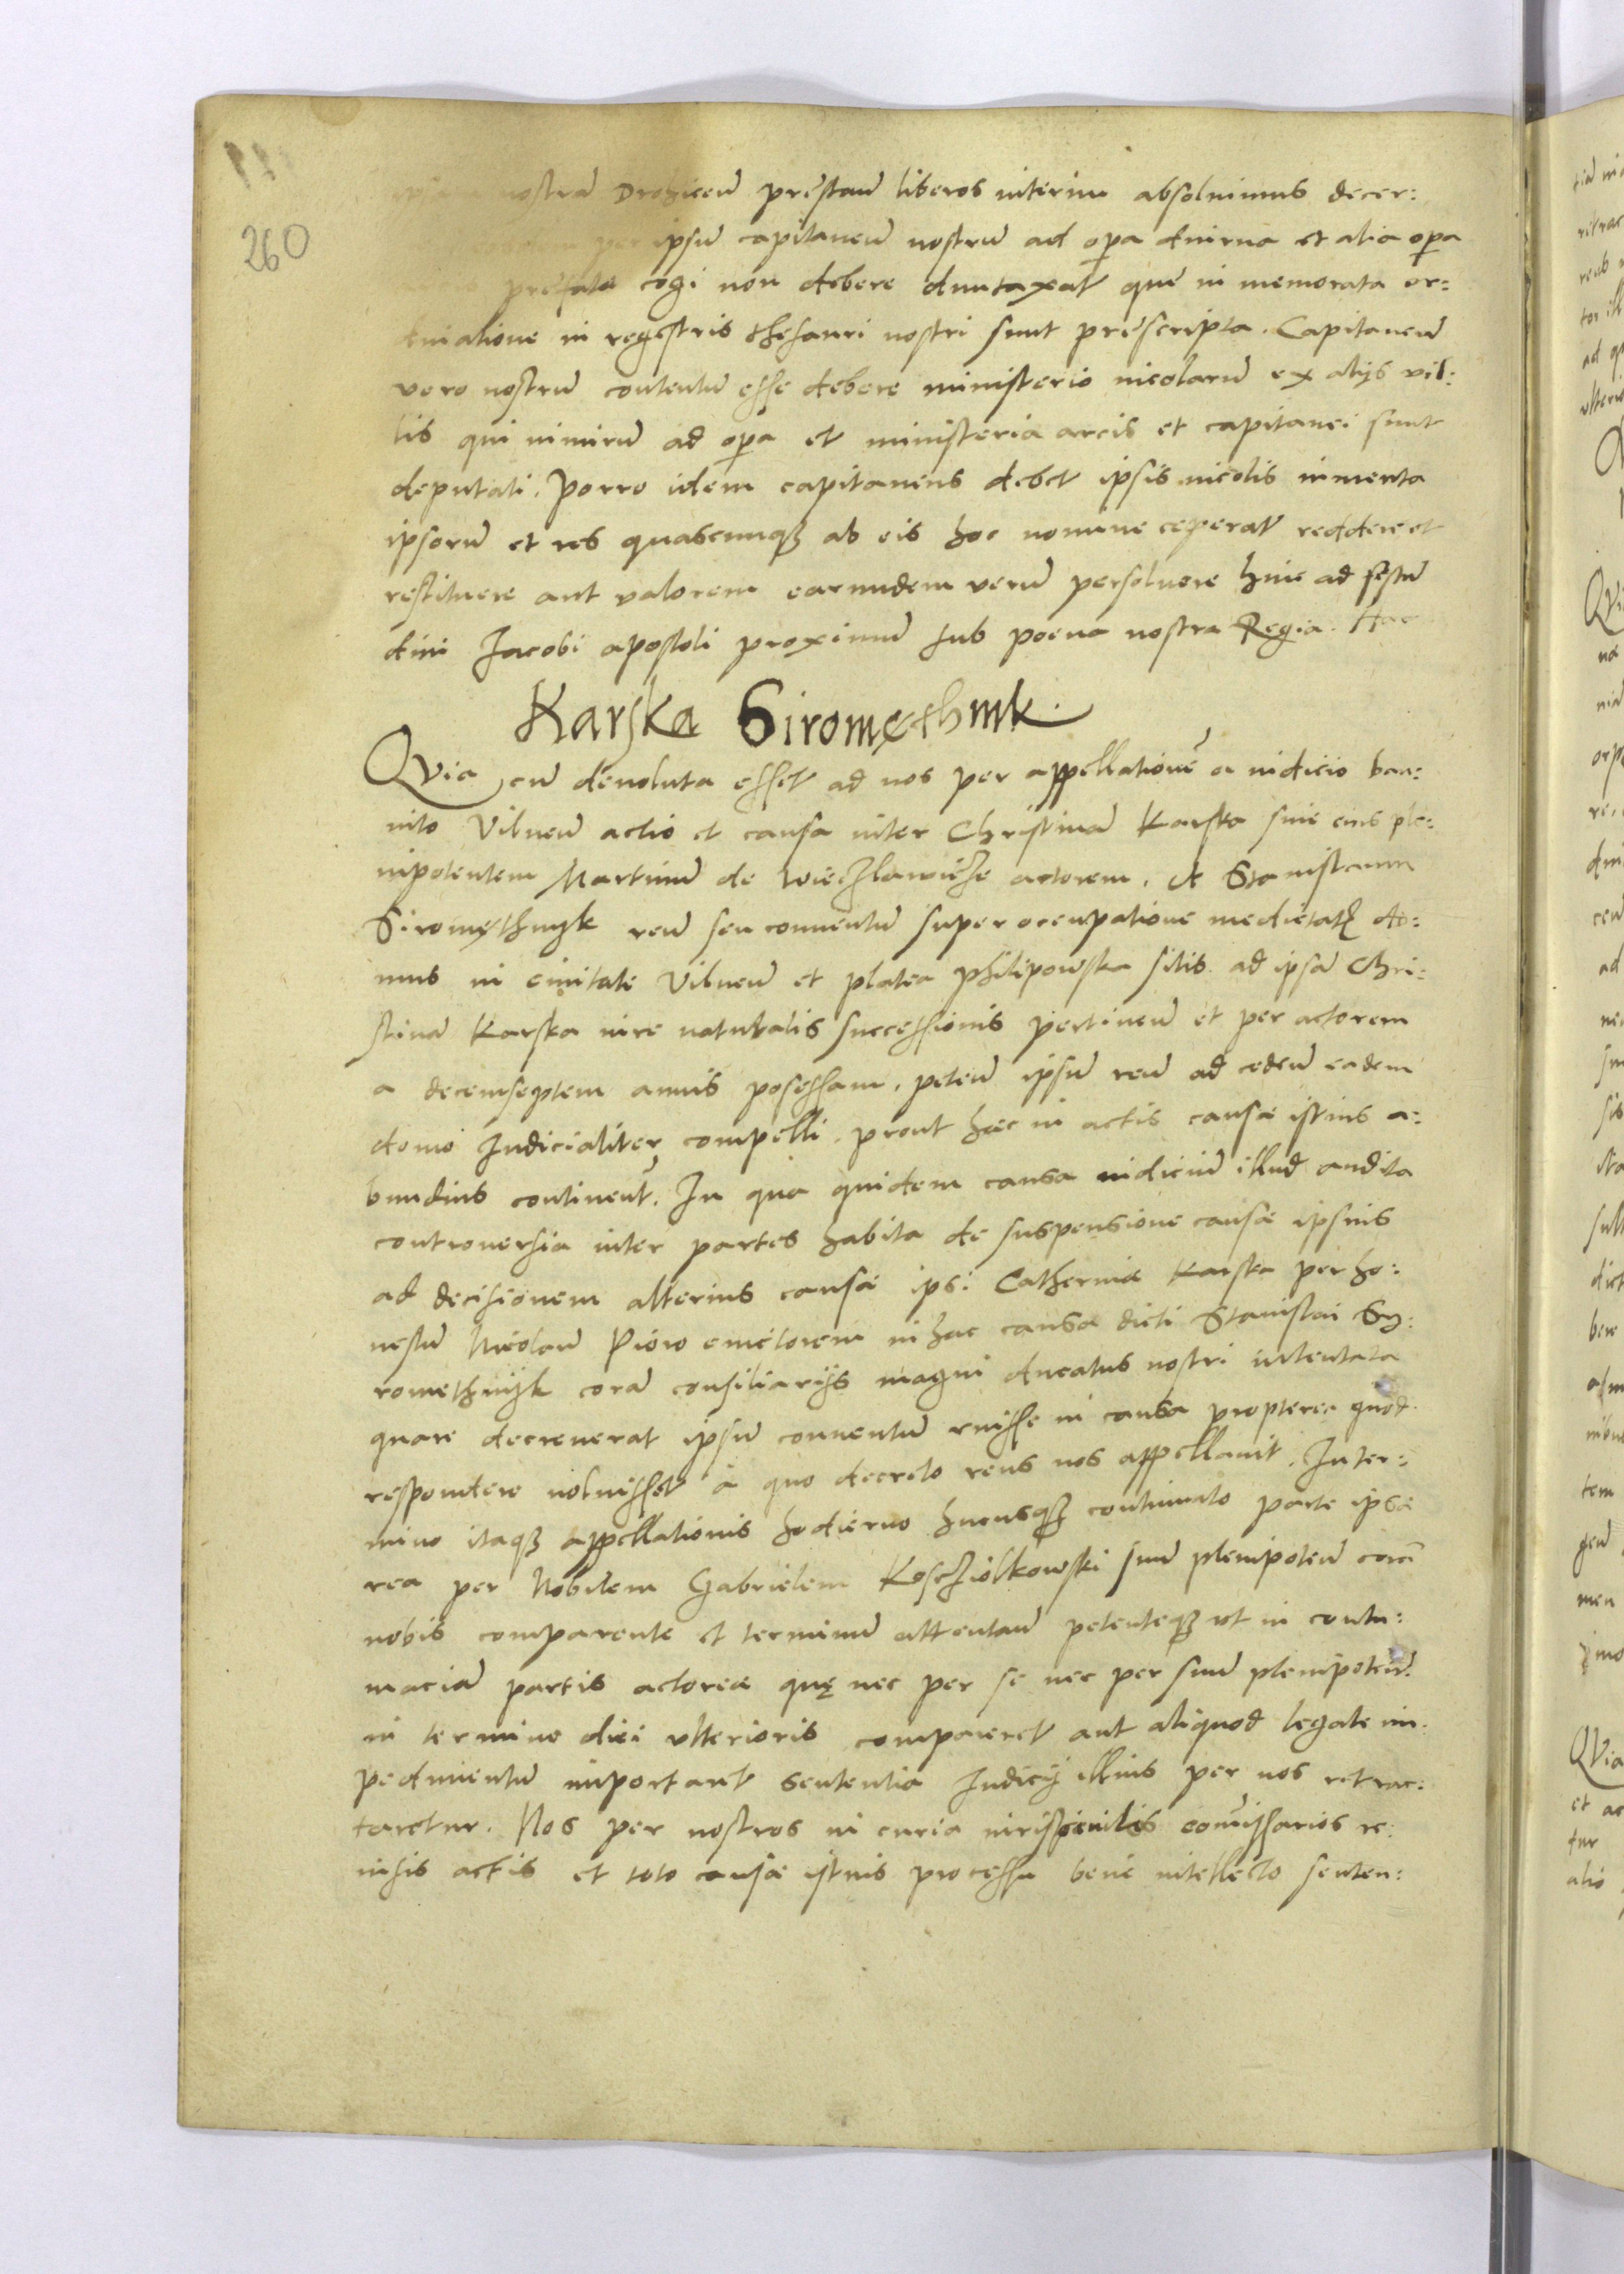 260
nostrã Drohiceñ prestañ liberos interim absoluimus decer:
per ipsũ capitaneũ nostrũ ad opa diurna et alia opa
prefata cogi non debere duntaxat que in memorata or:
dinatione in regestris thesauri nostri sunt prescripta. Capitaneũ
vero nostrũ contentũ esse debere ministerio incolarũ ex alijs vil:
lis qui nimirũ ad opa et ministeria arcis et capitanei sunt
deputati. Porro idem capitaneus debet ipsis incolis iumenta
ipsorũ et res quascunqȝ ab eis hoc nomine ceperat reddere et
restituere aut valorem earundem verũ persoluere hinc ad festũ
diui Jacobi apostoli proximũ sub poena nostra Regia. Hac
Karska Siromęthnik.
QVia cũ deuoluta esset ad nos per appellationẽ a iudicio ban:
nito Vilneñ actio et causa inter Christinã Karska siue eius ple:
nipotentem Martinũ de Wieczlawicze actorem. Et Stanislaum
Siromęthnyk reũ seu conuentũ super occupatione medietatꝭ do:
mus in ciuitate Vilneñ et platea Philipowska sitis ad ipsã Chri:
stinã Karska iure naturalis successionis pertineñ et per actorem
a decemseptem annis posessam. peteñ ipsũ reũ ad cedeñ eadem
domo Judicialiter compelli. prout hæc in actis causæ istius a:
bundius continent. In qua quidem causa iudiciũ illud audita
controuersia inter partes habita de suspensione causæ ipsius
ad decisionem alterius causæ ipsi Catherinæ Karska per ho:
nestũ Nicolaũ Pioro emctorem in hac causa dicti Stanislai Sy:
romethnijk corã consiliarijs magni ducatus nostri intentata
quare decreuerat ipsũ conuentũ ruisse in causa propterea quod
respondere noluisset à quo decreto reus nos appellauit. In ter:
mino itaqȝ appellationis hodierno hucusqȝ continuato parte ipsa
rea per Nobilem Gabrielem Koscziolkowski suũ plenipoteñ corã
nobis comparente et terminũ attentañ petenteqȝ vt in contu:
maciã partis actoreæ quę nec per se nec per suũ plenipoteñ
in termino diei vlterioris compareret aut aliquod legale im:
pedimentũ importaret sententia Judicij illius per nos retrac:
taretur. Nos per nostros in curia iurisperitos comissarios re:
uisis actis et toto causæ istius processu bene intellecto senten: